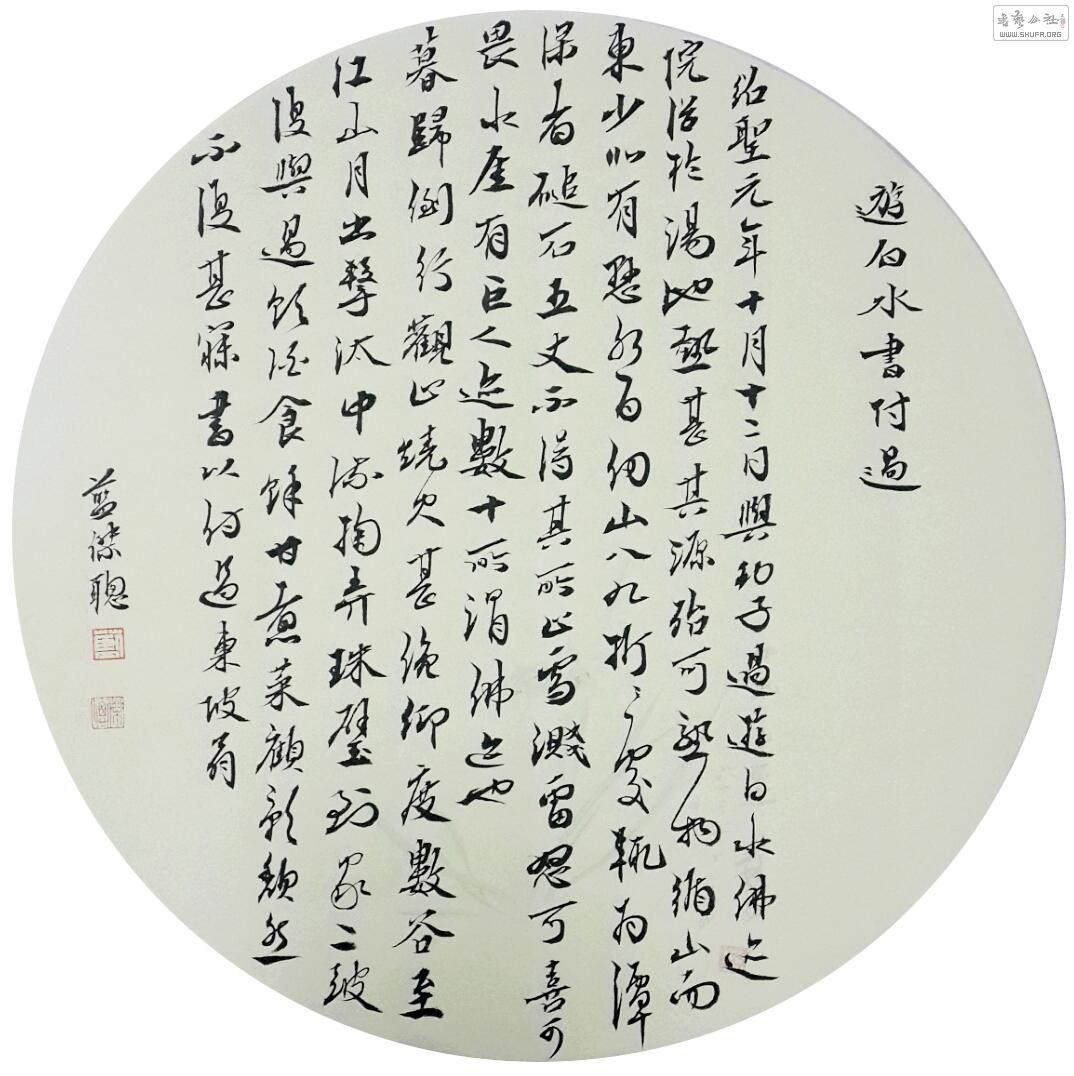 遊白水書付過
紹聖元年十月十二日與幼子過遊白水佛迹
院浴於湯池熱甚其源殆可熟物循山而
東少北有懸水百仞山八九折〻處輒為潭
深者磓石五丈不得其所止雪濺雷怒可喜可
畏水厓有巨人迹數十所謂佛迹也
暮歸倒行觀山燒火甚俛仰度數谷至
江山月出擊汰中流掬弄珠璧到家二鼓
復與過飲酒食餘甘煮菜顧影頹然
不復甚寐書以付過東坡翁
藍傑聰
書藝公社
WWW.SHUFA.ORG